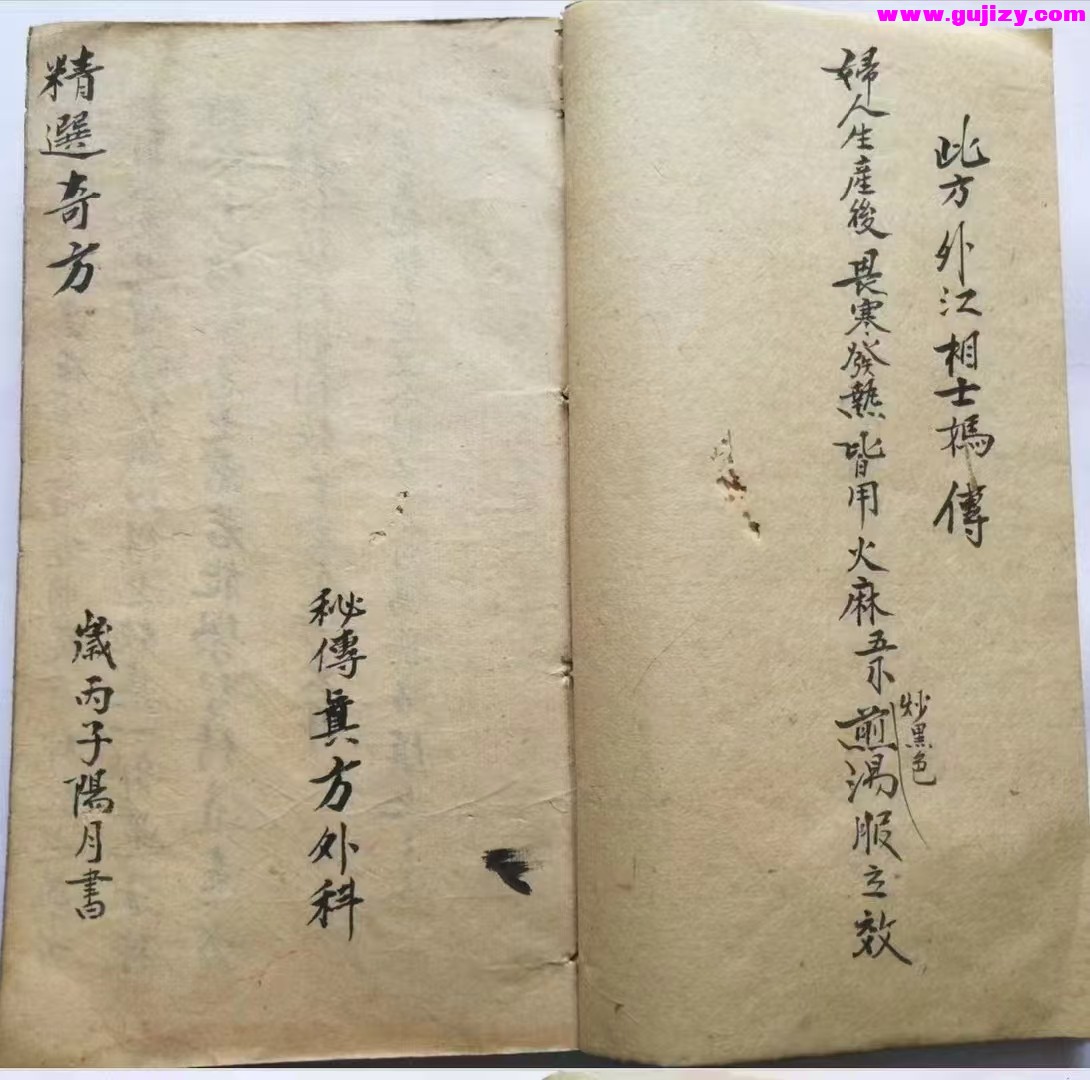 www.gujizy.com
此方外江相士媽傳
婦人生產後畏寒發熱皆用火麻五分煎湯服立效
炒黑色
秘傳眞方外科
歲丙子陽月書
精選奇方